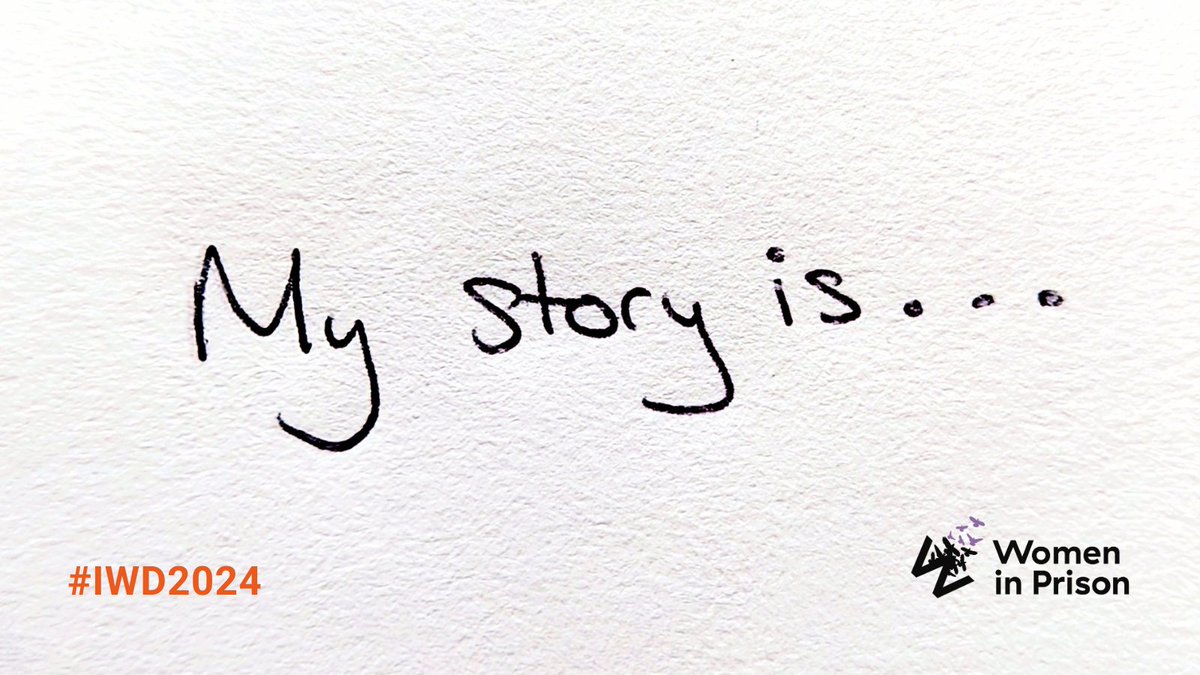 My story is...
#IWD2024
Women
in Prison